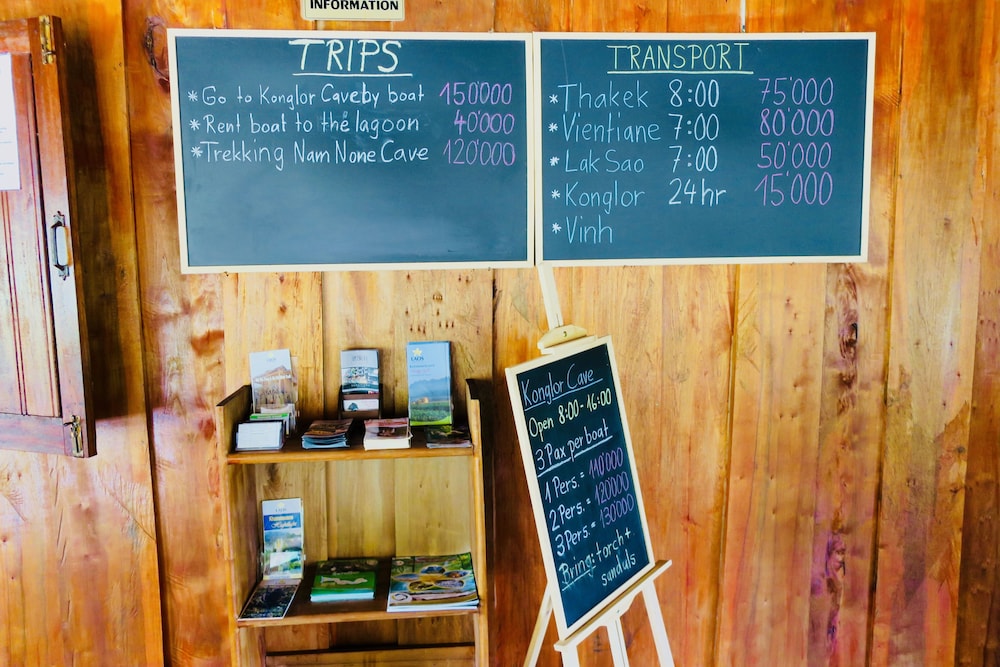 INFORMATION
TRIPS
*Go to Konglor Caveby boat 150'000
*Rent boat to the lagoon 40'000
*Trekking Nam None Cave 120'000
TRANSPORT
*Thakek 8:00 75'000
*Vientiane 7:00 80'000
*Lak Sao 7:00 50'000
*Konglor 24hr 15'000
*Vinh
Konglor Cave
Open 8:00-16:00
3 Pax per boat
1 Pers. = 110'000
2 Pers. = 120'000
3 Pers. = 130'000
Bring: torch+
sandals
LAOS